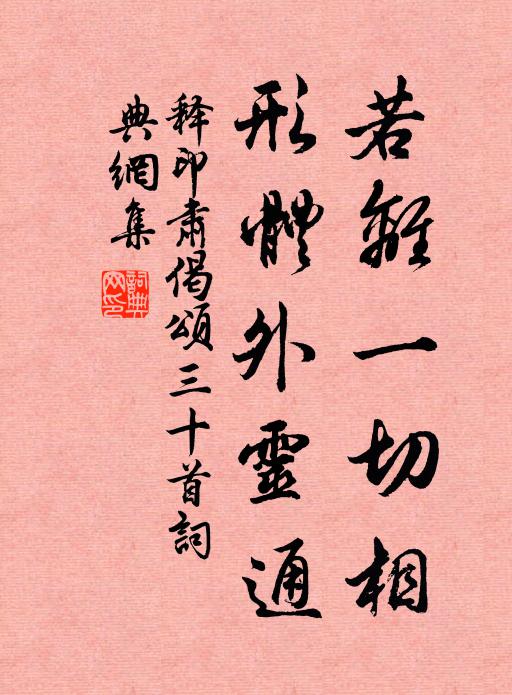 若離一切相
形體外靈通
释印肃偈頌三十首詞
典網集
詞典網印